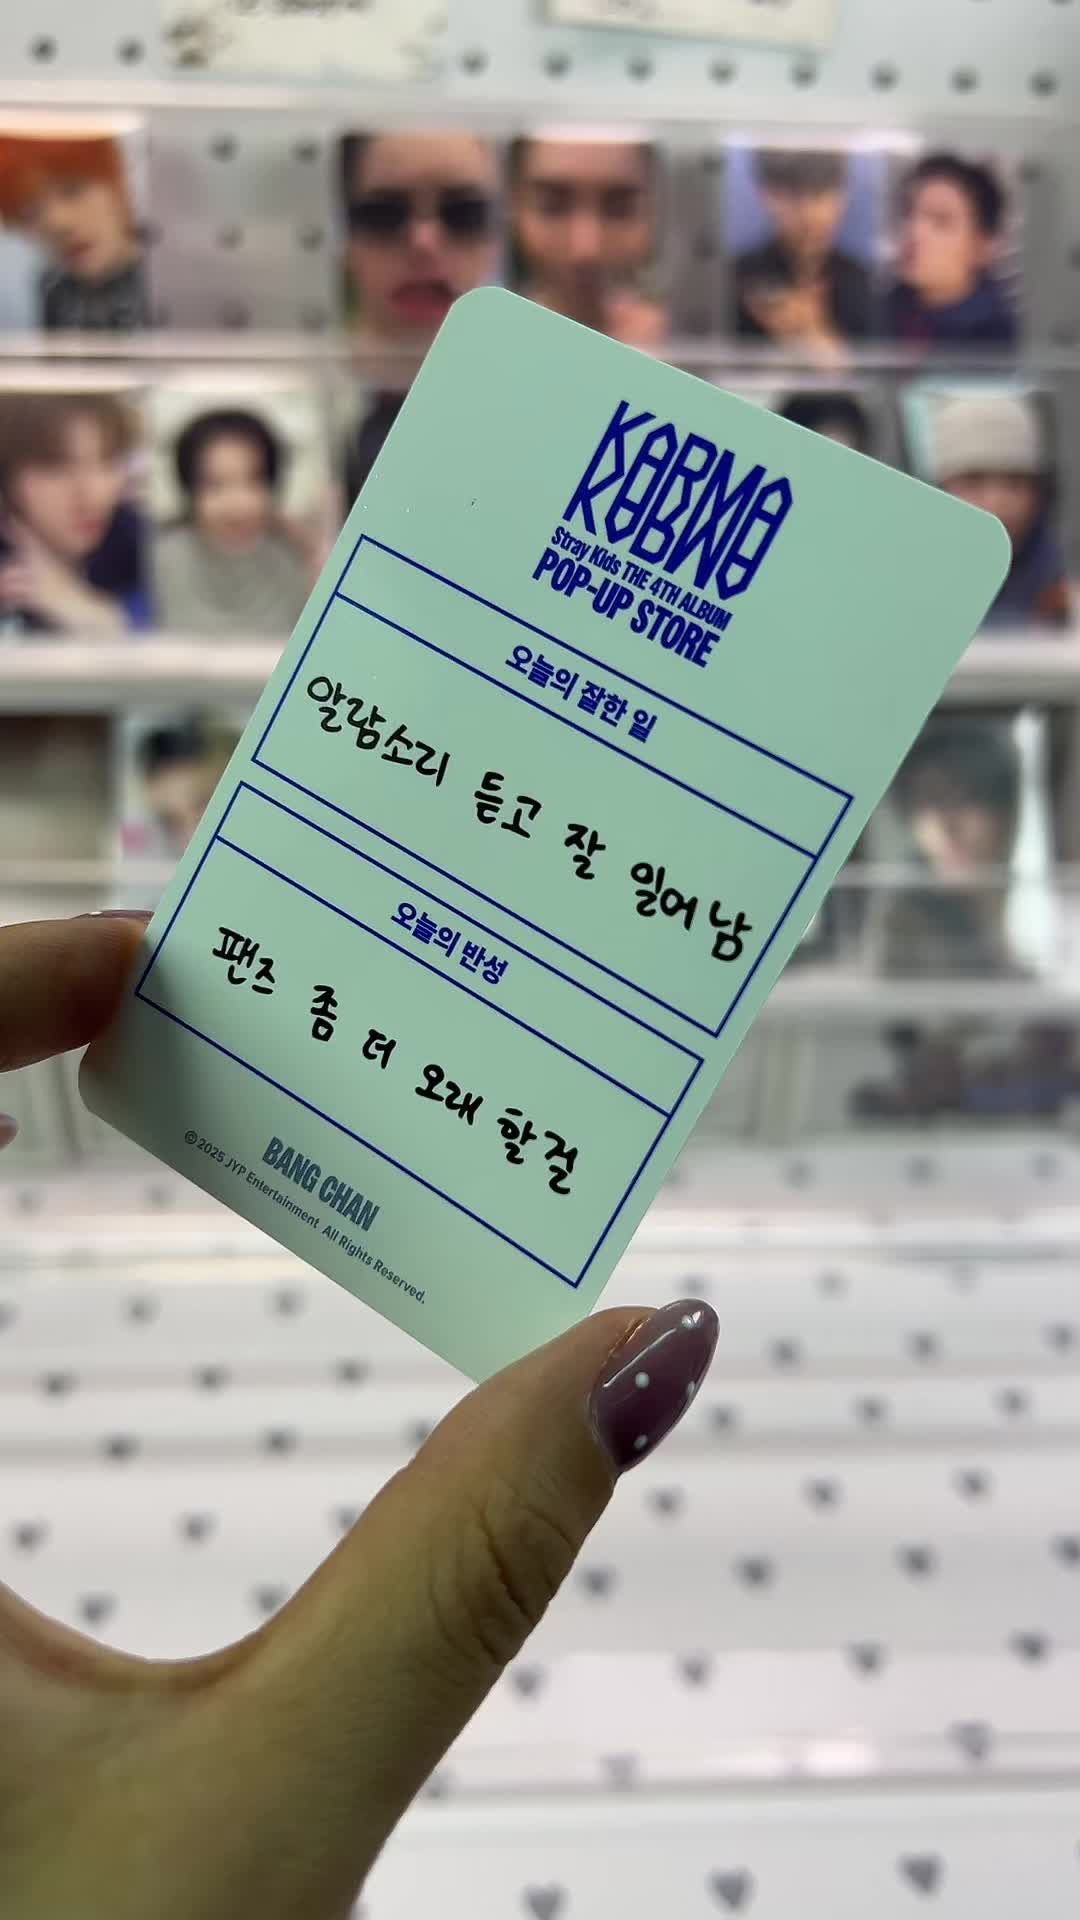 KARMA
Stray Kids THE 4TH ALBUM
POP-UP STORE
오늘의 잘한 일
알람소리 듣고 잘 일어남
오늘의 반성
팬즈 좀 더 오래 할걸
BANG CHAN
©2025 JYP Entertainment All Rights Reserved.